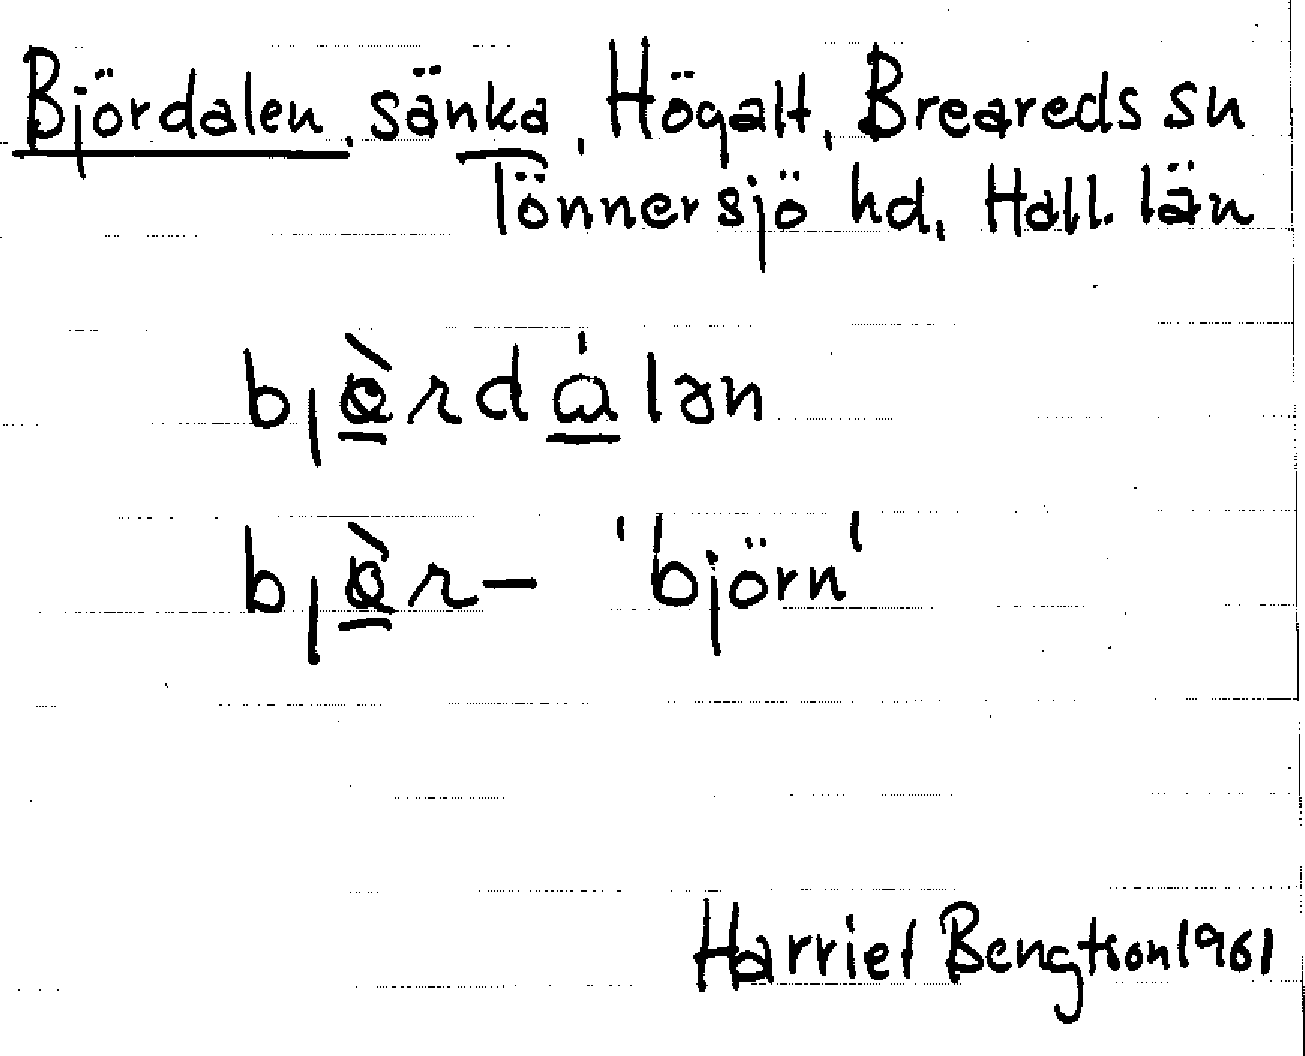 Björdalen, sänka, Högalt, Breareds sn
Tönnersjö hd, Hall. län
bjèrdálən
bjèr- 'björn'
Harriet Bengtson 1961